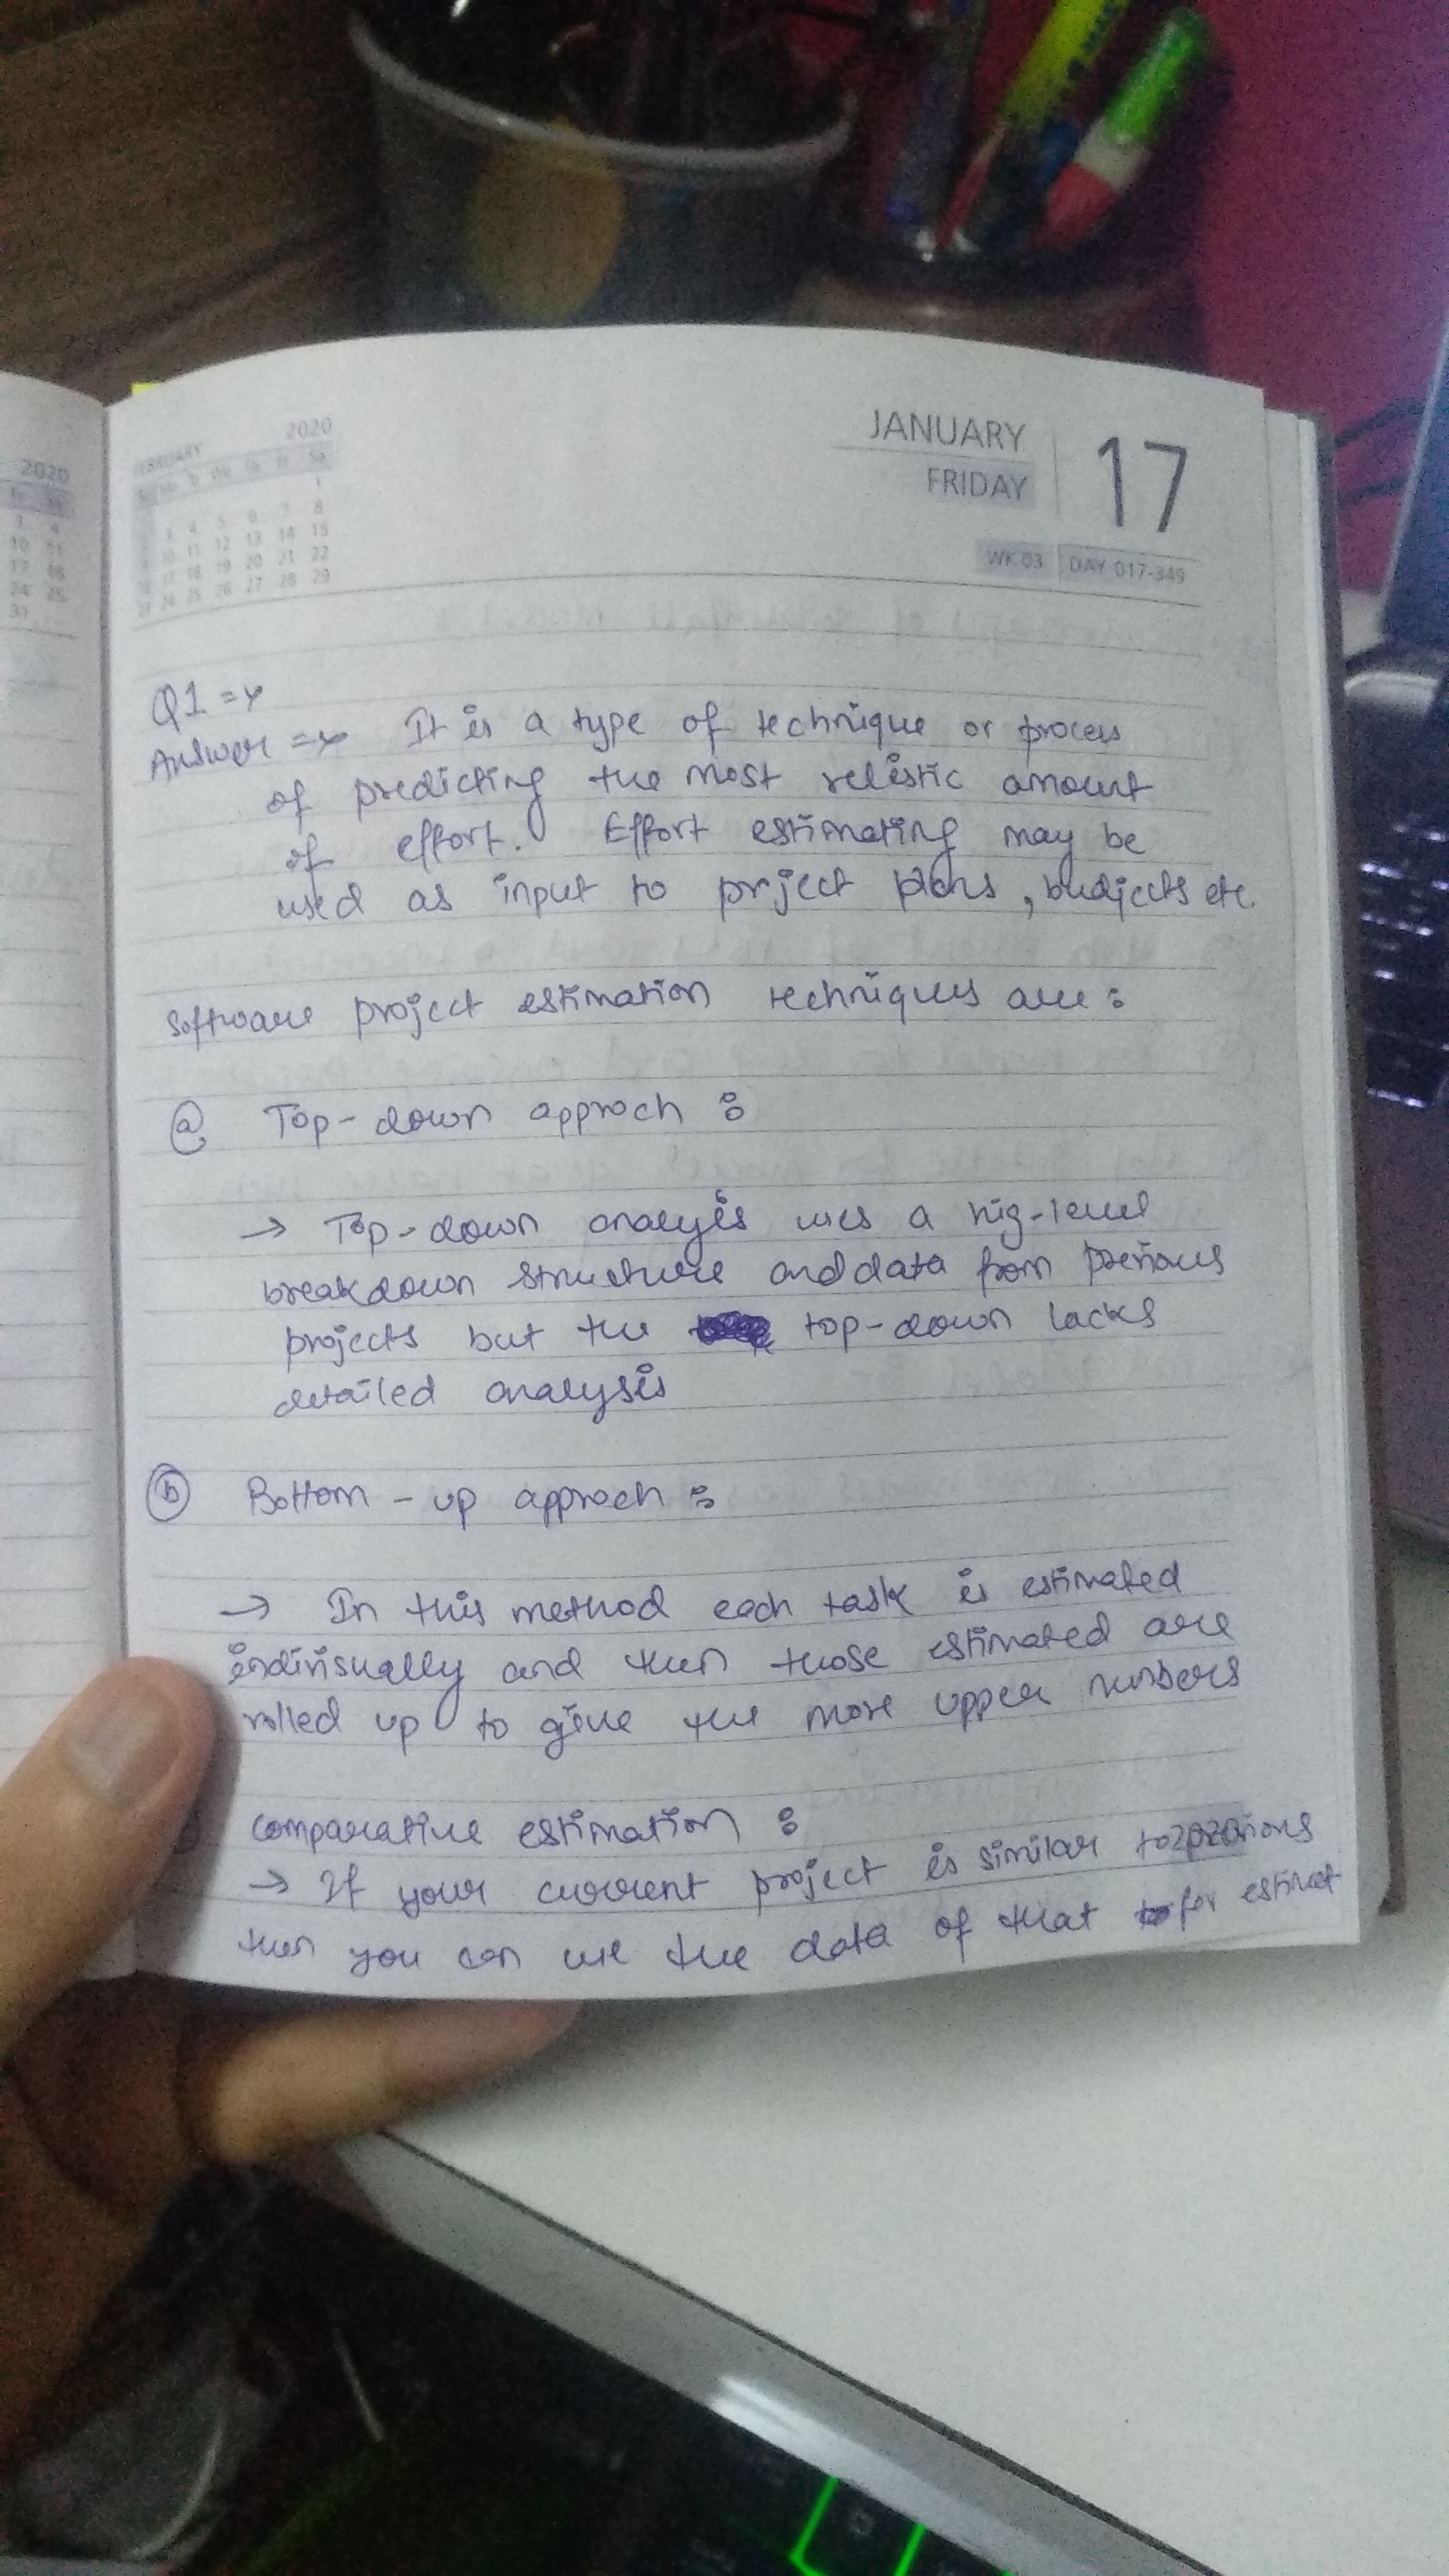 2020
JANUARY
FRIDAY
17
WK 03 DAY 017-349
FEBRUARY 2020
1
3 4 5 6 7 8
10 11 12 13 14 15
17 18 19 20 21 22
24 25 26 27 28 29
Q1 =>
Answer => It is a type of technique or process
of predicting the most relistic amount
of effort. Effort estimating may be
used as input to project plans, budjects etc
software project estimation techniques are :
(a) Top-down approch :
→ Top-down analysis uses a hig-level
breakdown structure and data from previous
projects but the top-down lacks
detailed analysis
(b) Bottom - up approch :
→ In this method each task is estimated
indivisually and then those estimated are
rolled up to give the more upper numbers
comparative estimation :
→ If your current project is similar to previous
then you can use the data of that for estimat